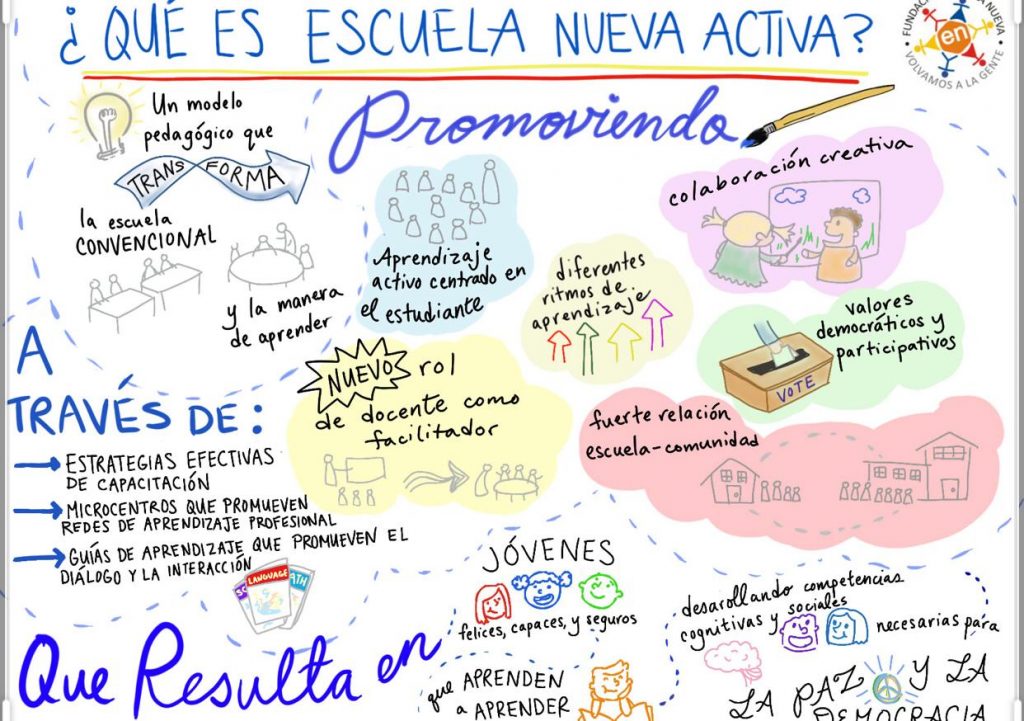 ¿QUÉ ES ESCUELA NUEVA ACTIVA?
en
VOLVAMOS A LA GENTE
Un modelo
pedagógico que
TRANSFORMA
la escuela
CONVENCIONAL
y la manera
de aprender
Promoviendo
Aprendizaje
activo centrado en
el estudiante
diferentes
ritmos de
aprendizaje
colaboración creativa
valores
democráticos y
participativos
VOTE
NUEVO rol
de docente como
facilitador
fuerte relación
escuela-comunidad
A
TRAVÉS DE:
ESTRATEGIAS EFECTIVAS
DE CAPACITACIÓN
MICROCENTROS QUE PROMUEVEN
REDES DE APRENDIZAJE PROFESIONAL
GUÍAS DE APRENDIZAJE QUE PROMUEVEN EL
DIÁLOGO Y LA INTERACCIÓN
LANGUAGE
Que Resulta en
JÓVENES
felices, capaces, y seguros
que APRENDEN
a APRENDER
desarollando competencias
cognitivas y sociales
necesarias para
LA PAZ Y LA
DEMOCRACIA